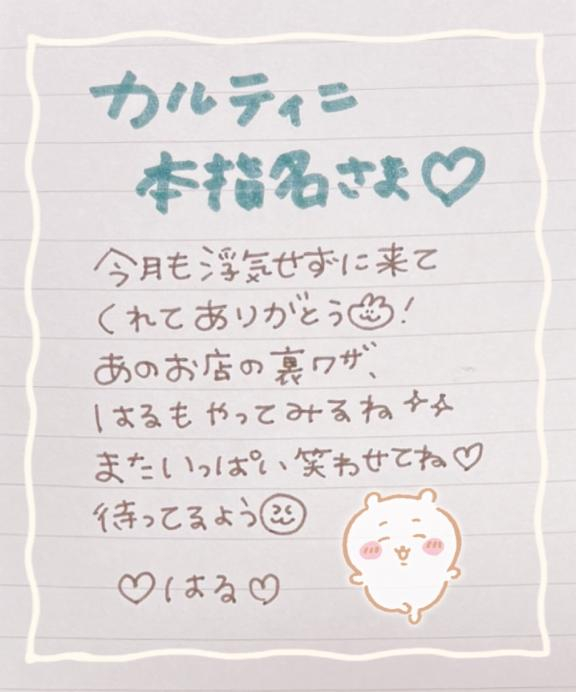 カルティニ
本指名さま♡
今月も浮気せずに来て
くれてありがとう!
あのお店の裏ワザ、
はるもやってみるね
またいっぱい笑わせてね♡
待ってるよう
♡はる♡